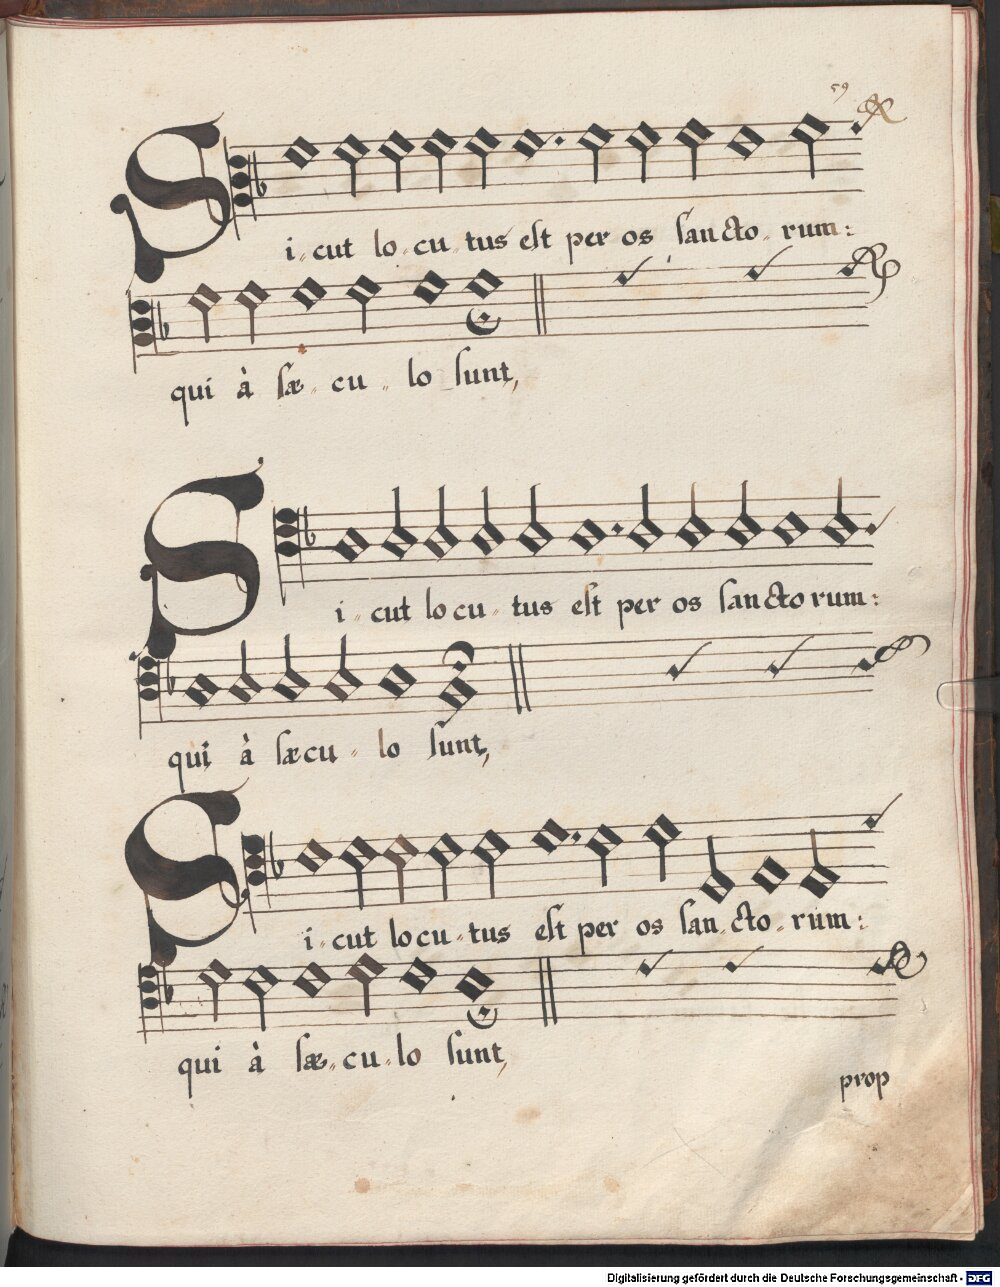 59
Si-cut lo-cu-tus est per os sancto-rum:
qui à sæ-cu-lo sunt,
Si-cut locu-tus est per os sanctorum:
qui à sæcu-lo sunt,
Si-cut locu-tus est per os san-cto-rum:
qui à sæ-cu-lo sunt,
prop
Digitalisierung gefördert durch die Deutsche Forschungsgemeinschaft - DFG